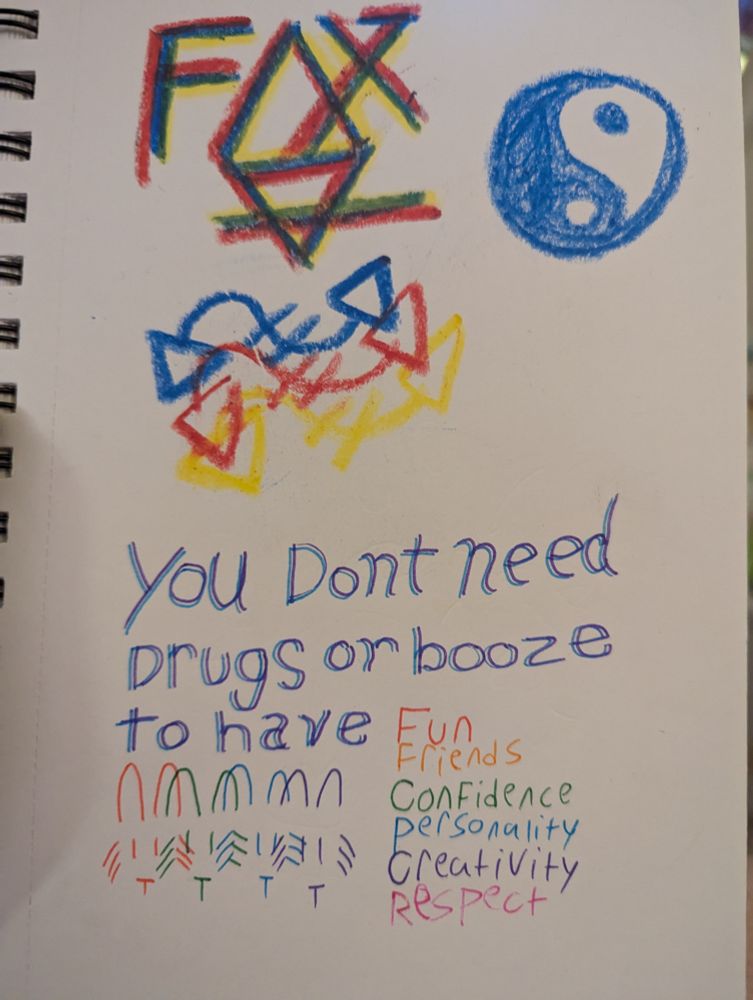 FOX
You Dont need
Drugs or booze
to have Fun
Friends
Confidence
personality
Creativity
Respect